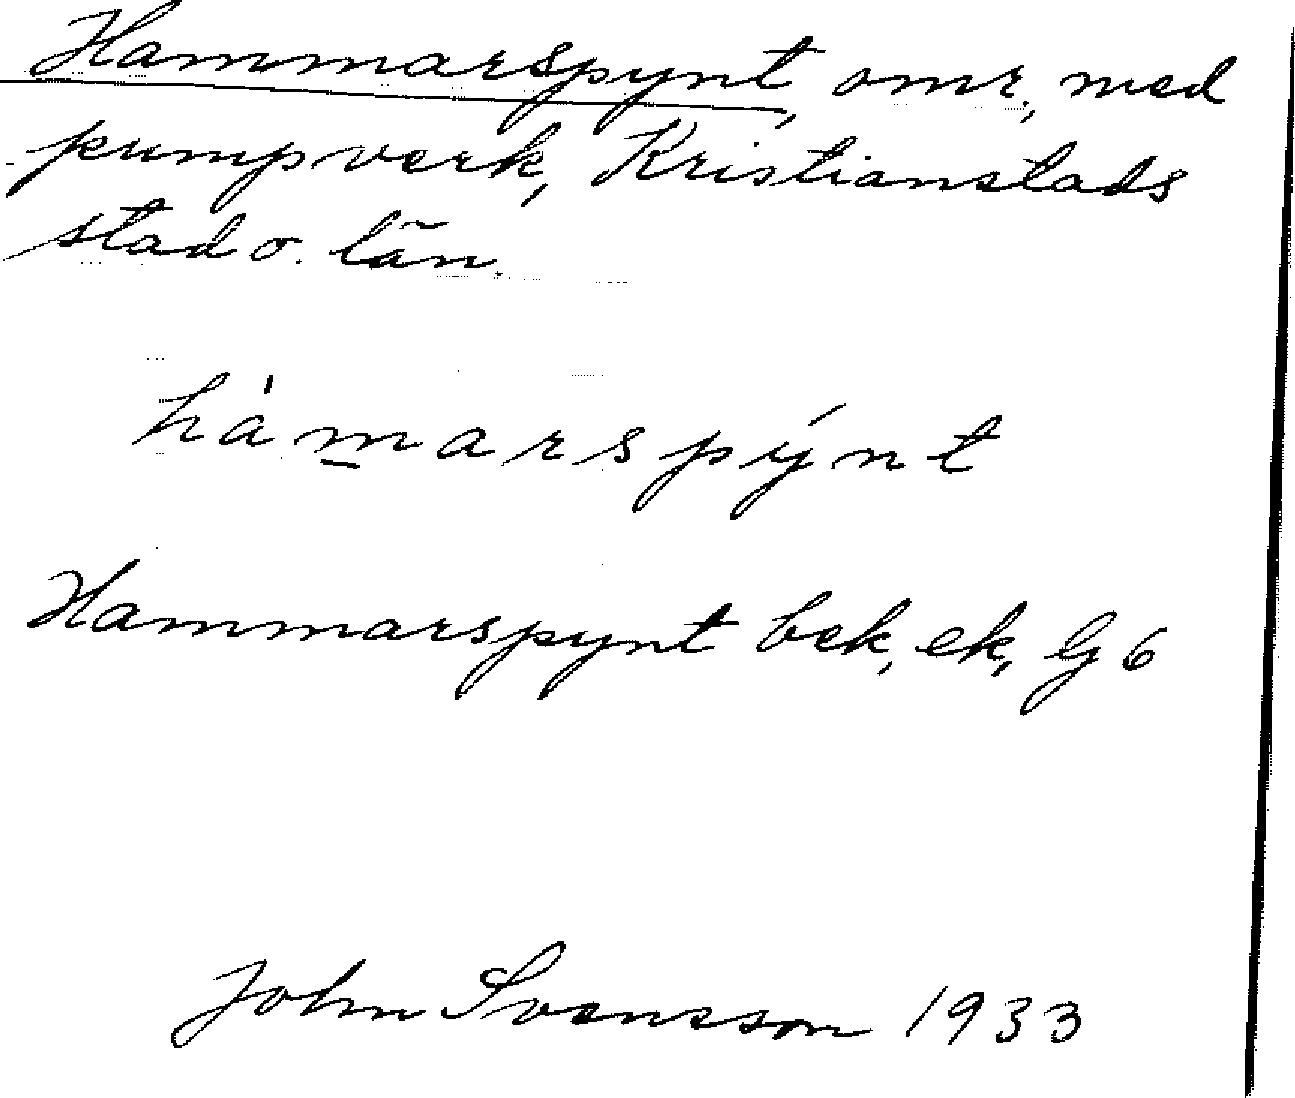 Hammarspynt, omr. med
pumpverk, Kristianstads
stad o. län.
hàm̱arspýnt
Hammarspynt bek, ek, G 6
John Svensson 1933